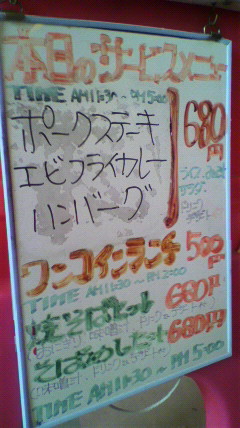 本日のサービスメニュー
TIME AM11:30～PM5:00
ポークステーキ
エビフライカレー
ハンバーグ
680円
ライス、みそ汁
サラダ
ワンコインランチ 500円
TIME AM11:30～PM2:00
焼そばセット 680円
そばめしセット 680円
TIME AM11:30～PM5:00